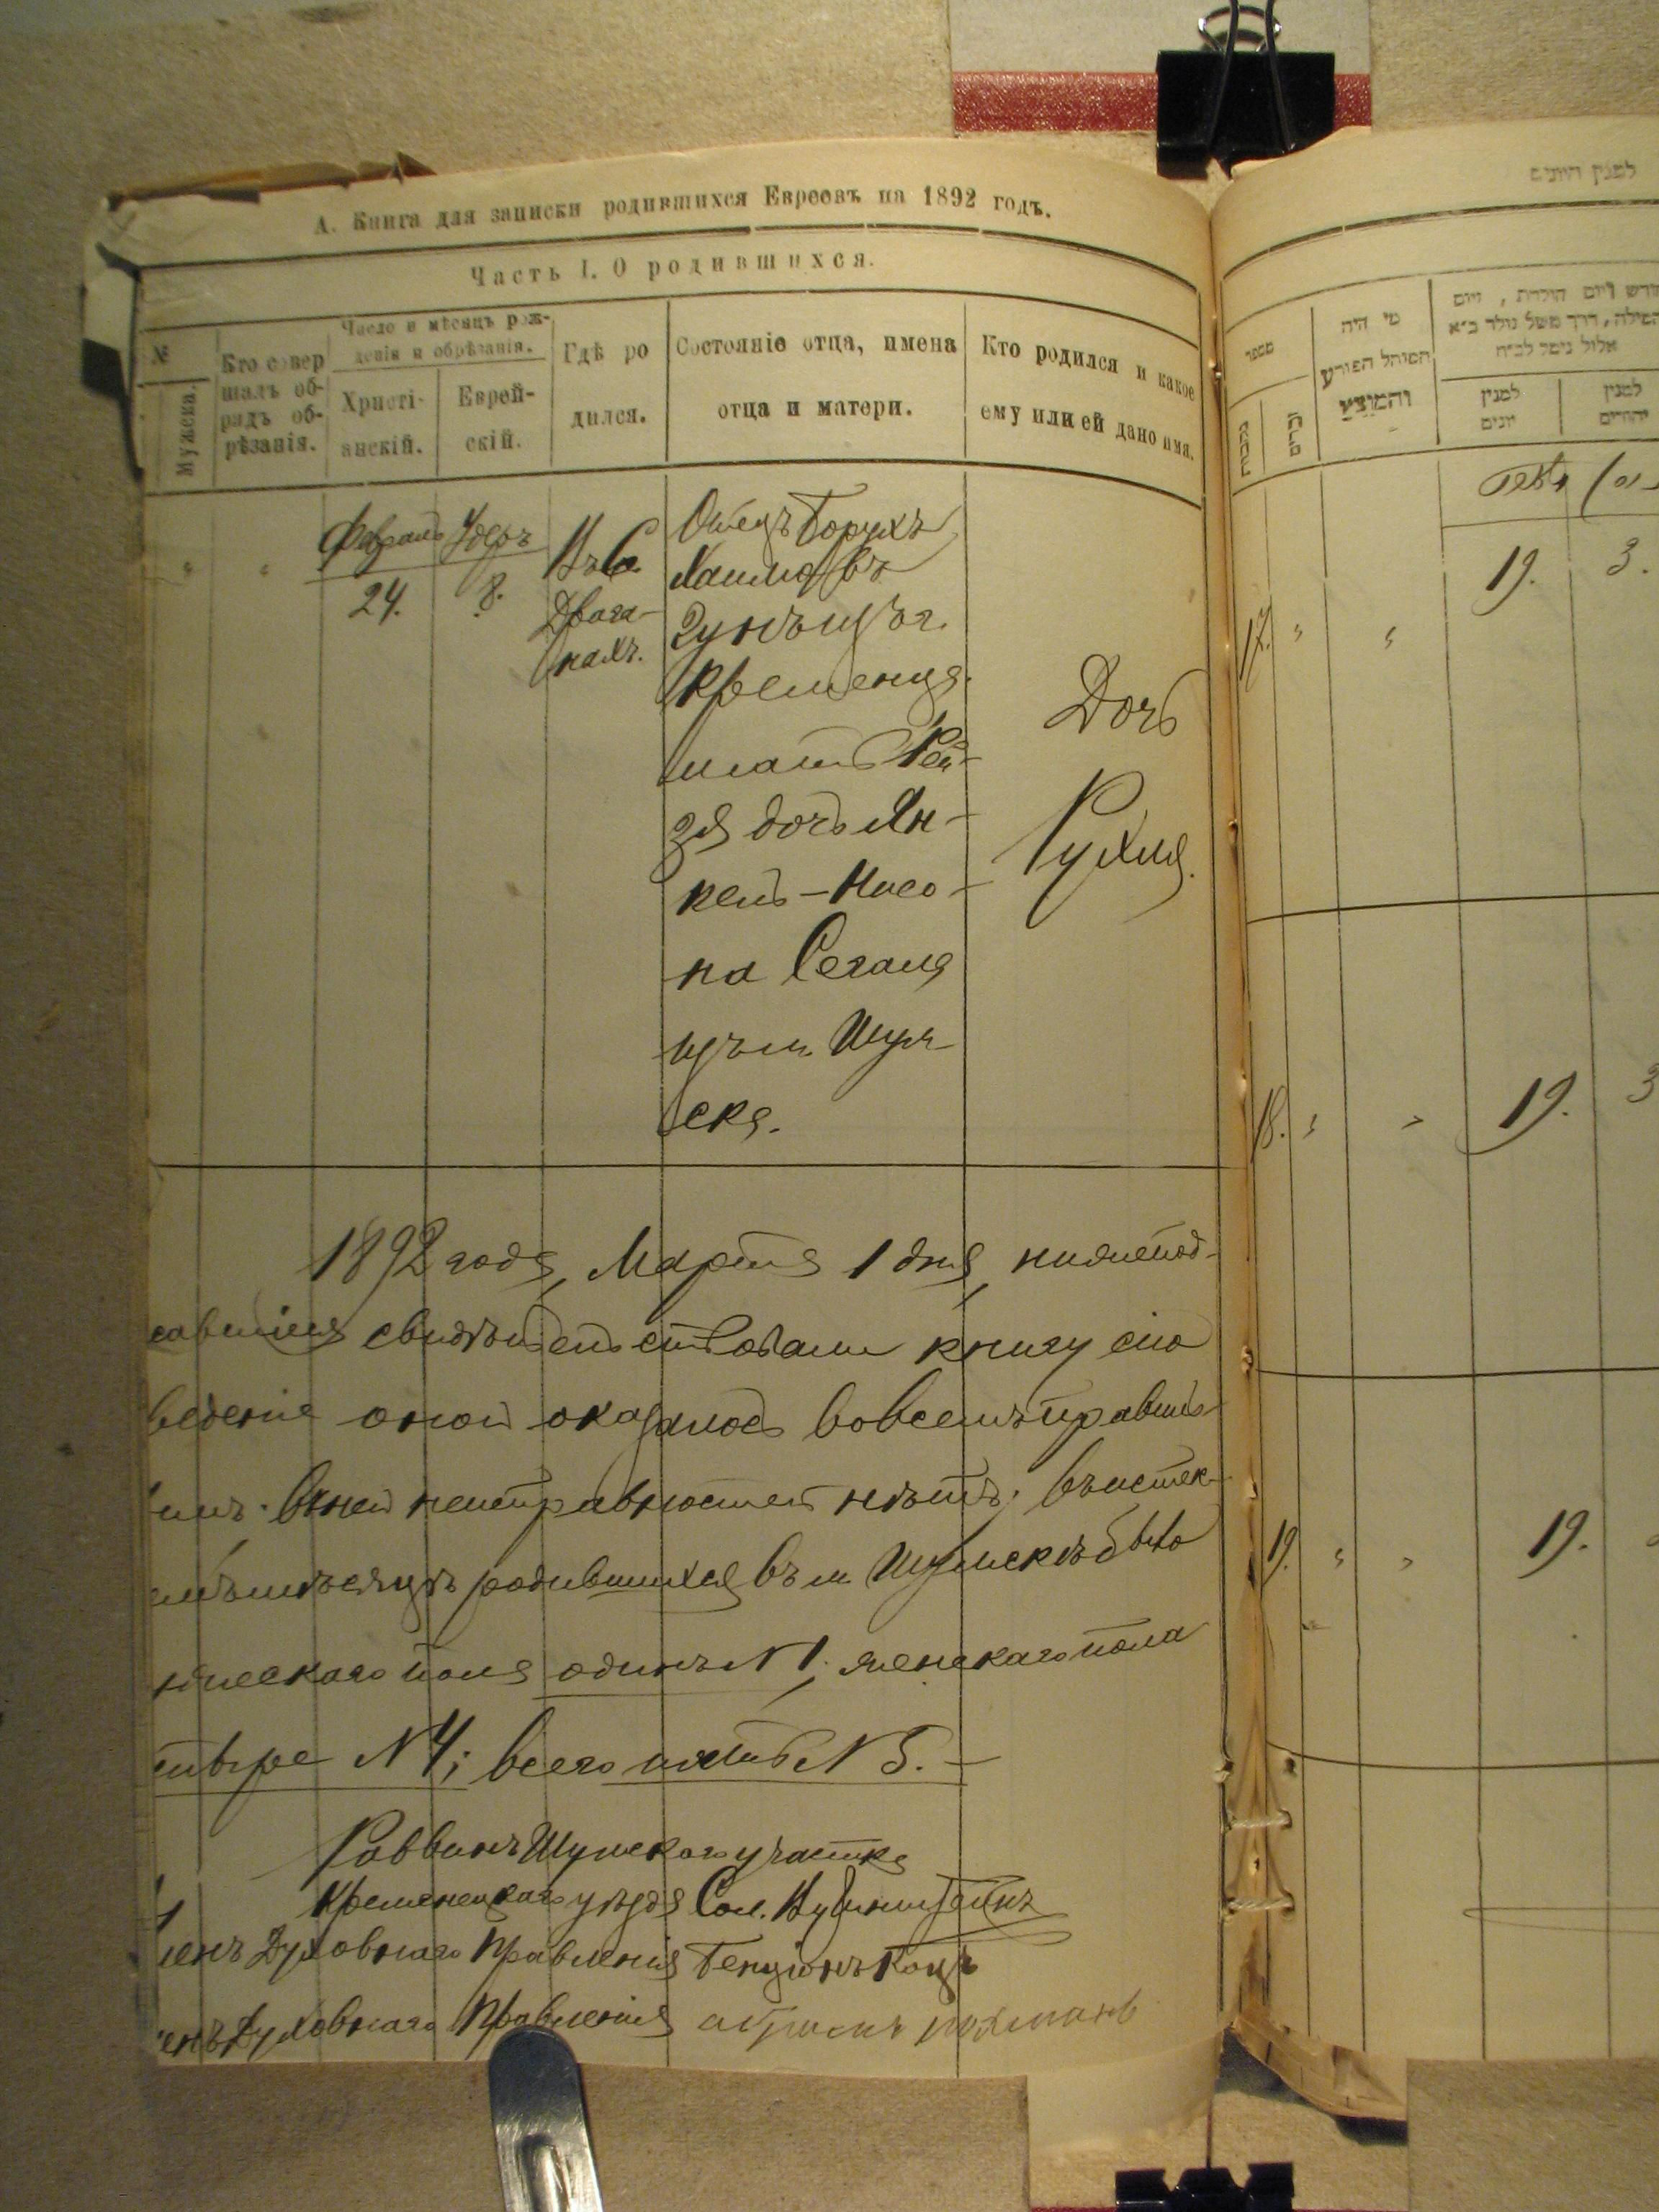 А. Книга для записки родившихся Евреевъ на 1892 годъ.
Часть I. О родившихся.
№
Мужеска.
Кто совер
шалъ об-
рядъ об-
рѣзанія.
Число и мѣсяцъ рож-
денія и обрѣзанія.
Христі-
анскій.
Еврей-
скій.
Гдѣ ро
дился.
Состояніе отца, имена
отца и матери.
Кто родился и какое
ему или ей дано имя.
Февраль
24.
Адеръ
8.
Въ С.
Драга-
нахъ.
Отецъ Борухъ
Хаимовъ
изъ г.
Кременца.
мать Рей-
зя дочь Ян-
кель-Нисо-
на Сегала
изъ м. Шум-
ска.
Дочь
Рухля.
1892 года, Марта 1 дня, нижепод-
савшіеся свидѣтельствовали книгу сію
веденіе оной оказалось во всемъ правиль-
имъ. въ ней неисправностей нѣтъ; въ истек-
мѣсяцѣ родившихся въ м. Шумскѣ было
мужескаго пола одинъ N 1; женскаго пола
тыре N 4; всего пять N 5.
Раввинъ Шумскаго участка
Кременецкаго уѣзда Сол.
ленъ Духовнаго Правленія Бенціонъ Кацъ
енъ Духовнаго Правленія
למנין היונים
מספר
נקבות
זכרים
מי היה
המוהל הפורע
והמוצץ
חודש ויום הולדת, ויום
המילה, דרך משל נולד כ״א
אלול ניסל לכ״ח
למנין
יונים
למנין
יהודים
17.
19.
3.
18.
19.
3
19.
19.